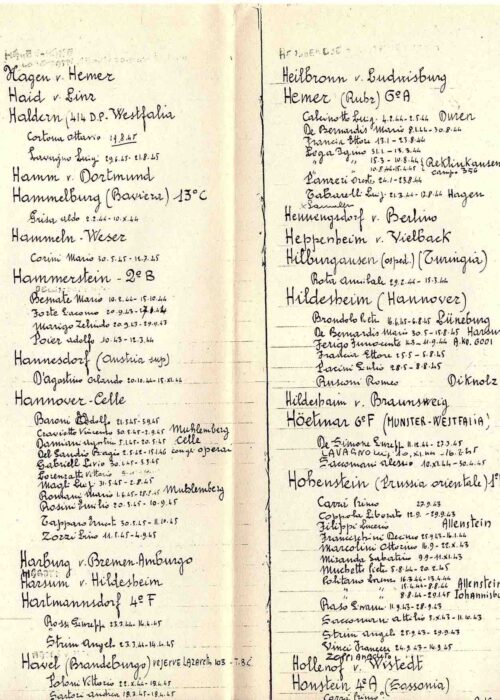 Hagen v. Hemer
Haid v. Linz
Haldern (414 D.P. Westfalia
Cortona Ottavio 19.8.45
Lavagno Luigi 29.6.45 - 21.8.45
Hamm v. Dortmund
Hammelburg (Baviera) 13° C
Grisa aldo 2.2.44 - 10.X.44
Hameln - Weser
Corini Mario 30.5.45 - 12.7.45
Hammerstein - 2° B
Besnate Mario 10.2.44 - 15.10.44
Forte Giacomo 20.9.43
Marigo Zelindo 20.9.43 - 29.9.43
Poier adolfo 10.43 - 12.3.44
Hannesdorf (Austria sup)
D'Agostino Orlando 20.10.44 - 15.XI.44
Hannover - Celle
Baroni 21.5.45 - 5.9.45
Craviotto Vincenzo Muhlemberg
Damiani agostino 5.1.45 - 20.5.45 Celle
operai
Gabrieli Livio 30.1.45 - 5.3.45
Lorenzatti Vittorio
Magt Luigi 31.5.45 - 2.8.45
Romani Mario Muhlemberg
Rossini Emilio 20.5.45 - 10.9.45
Tapparo Ernesto 30.5.45 - 11.10.45
Zozzi Lino 11.5.45 - 4.9.45
Harburg v. Bremen - Amburgo
Harsum v. Hildesheim
Hartmannsdorf 4° F
Rossi Giuseppe 23.7.44 - 14.4.45
Strim Angel 23.7.44 - 14.4.45
Havel (Brandeburgo) reserve Lazareth 103 - T.B.C
Poloni Vittorio
Sartori Andrea
Heilbronn v. Ludwisburg
Hemer (Ruhr) 6° A
Calvinotti Luig. 4.2.44 - 2.5.44 Düren
De Bernardis Mario 8.1.44 - 30.8.44
Francia Ettore 13.1 - 23.8.44
Loga Igino 31.1 - 15.3.44
" " 15.3 - 10.8.44 (Reklinkausen
" " camp. 356
Panzeri Oreste 24.1 - 23.8.44
Tabarelli Luigi 21.3.44 - 12.8.44 Hagen
Hennengsdorf v. Berlino
Heppenheim v. Vielback
Hilburgausen (osped.) (Turingia)
Rota Annibale 29.2.44 - 15.3.44
Hildesheim (Hannover)
Brondolo Pietro 16.4.45 - 6.8.45 Lüneburg
De Bernardis Mario 30.5 - 15.8.45
Ferigo Innocente 4.3 - 11.9.44 A.Ko. 6001
Francia Ettore 25.5 - 5.8.45
Parini Giulio 28.5 - 8.8.45
Russoni Romeo Diknolz
Hildeshaim v. Braunsweig
Höetmar 6° F (MUNSTER - WESTFALIA)
De Simone Giusepp. 11.11.44 - 27.3.45
LAVAGNO Luig.
Saccomani Alessio 10.XI.44 - 30.4.45
Hohenstein (Prussia orientale) 1°
Carrì Primo 27.9.43
Coppola Liborato 12.9. - 29.9.43
Filippi Lucerio Allenstein
Franceschini Decimo
Marcolini Ottorino 16.9 - 22.X.43
Miranda Sabatino 9.9 - 11.XI.43
Muchetti Pietro 5.8.44 - 20.2.45
Politano
" " Allenstein
" " 8.8.44 - 29.1.45 Iohannisbu
Raso Ernani 11.9.43 - 28.9.43
Saccoman attilio 3.X.43 - 11.10.43
Strim Angel 25.9.43 - 29.9.43
Vinci Francesc. 24.9.43 - 16.9.45
Hollenof v. Wistedt
Honstein 4° A (Sassonia)
Carrì Primo